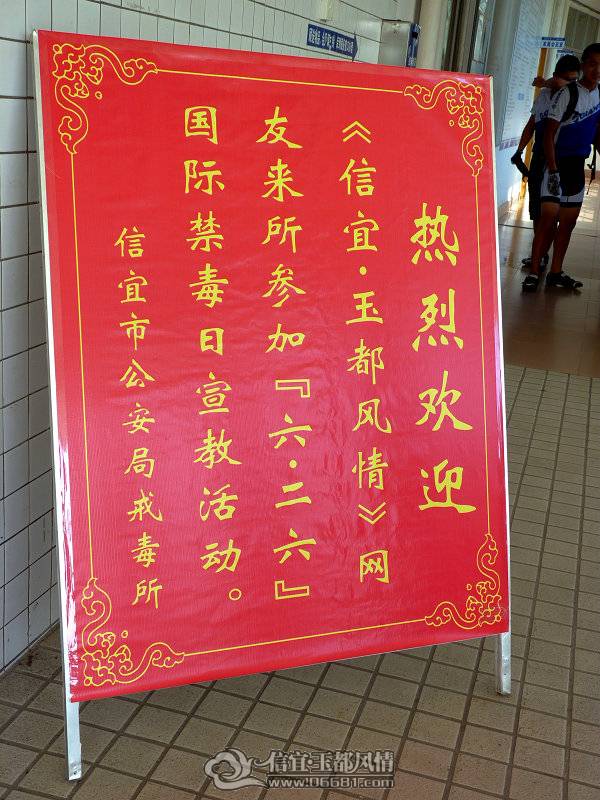 热烈欢迎
《信宜·玉都风情》网
友来所参加『六·二六』
国际禁毒日宣教活动。
信宜市公安局戒毒所
信宜玉都风情
www.06681.com